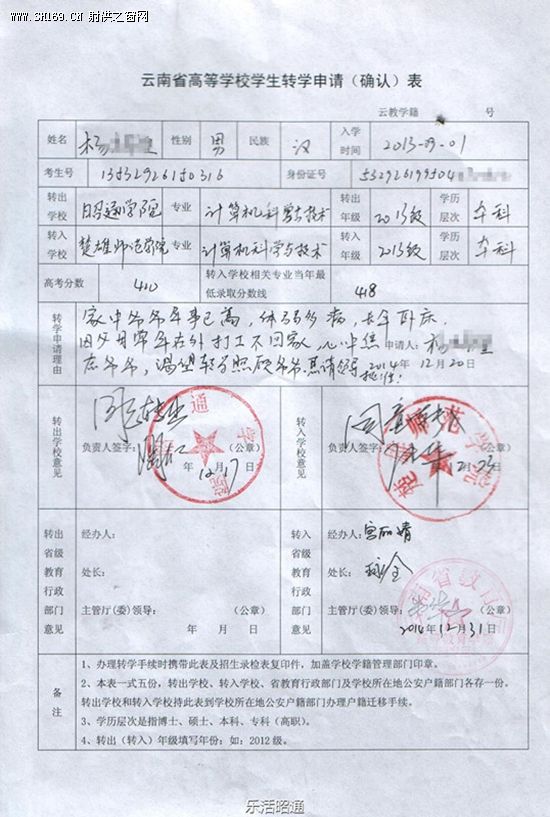 www.SH169.cn 射洪之窗网
云南省高等学校学生转学申请（确认）表
云教学籍 号
姓名 杨 性别 男 民族 汉 入学时间 2013-09-01
考生号 13532926150316 身份证号 532926199504
转出学校 昭通学院 专业 计算机科学与技术 转出年级 2013级 学历层次 本科
转入学校 楚雄师范学院 专业 计算机科学与技术 转入年级 2013级 学历层次 本科
高考分数 410 转入学校相关专业当年最低录取分数线 418
转学申请理由
家中爷爷年事已高，体弱多病，长年卧床
因父母常年在外打工不回家，心中焦 申请人：杨
虑爷爷，渴望转学照顾爷爷。恳请领导批准！ 2014年12月20日
转出学校意见
同意转出
负责人签字： （公章）
年 12.17日
转入学校意见
同意
负责人签字： （公章）
12.25
转出省级教育行政部门意见
经办人：
处长：
主管厅(委)领导： （公章）
年 月 日
转入省级教育行政部门意见
经办人：
处长：
主管厅(委)领导： （公章）
2014年12月31日
备注
1、办理转学手续时携带此表及招生录检表复印件，加盖学校学籍管理部门印章。
2、本表一式五份，转出学校、转入学校、省教育行政部门及学校所在地公安户籍部门各存一份。
转出学校和转入学校持此表到学校所在地公安户籍部门办理户籍迁移手续。
3、学历层次是指博士、硕士、本科、专科（高职）。
4、转出（转入）年级填写年份：如：2012级。
乐活昭通